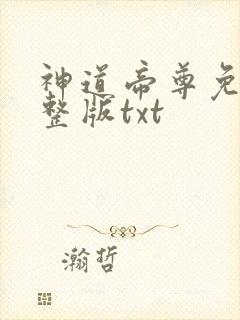 神道帝尊免
整版txt
瀚哲